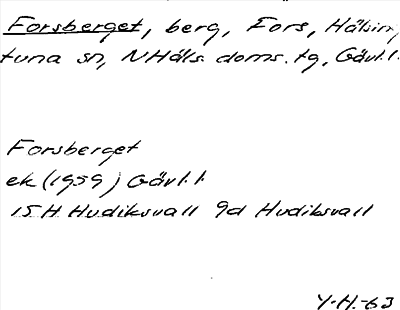 Forsberget, berg, Fors, Hälsing
tuna sn, NHäls. doms. tg, Gävl.l.
Forsberget
ek (1959) Gävl.l.
15 H Hudiksvall 9d Hudiksvall
Y.H.-63